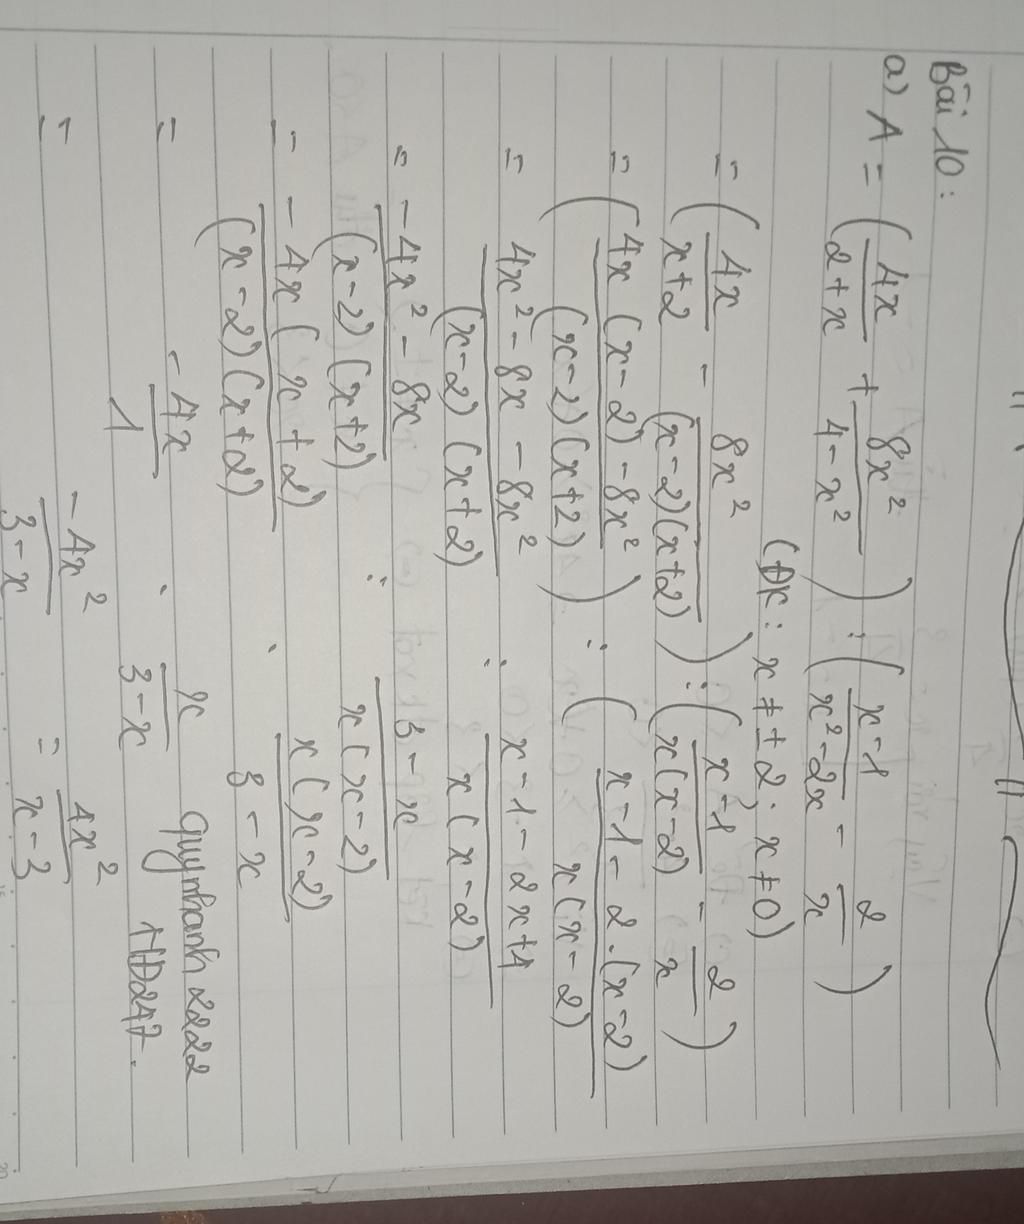 Bài 10:
a) A = (4x/(2+x) + 8x²/(4-x²)) : ((x-1)/(x²-2x) - 2/x)
(ĐK: x ≠ ±2; x ≠ 0)
= (4x/(x+2) - 8x²/((x-2)(x+2))) : ((x-1)/(x(x-2)) - 2/x)
= ((4x(x-2)-8x²)/((x-2)(x+2))) : ((x-1-2.(x-2))/(x(x-2))
= (4x²-8x-8x²)/((x-2)(x+2)) : (x-1-2x+4)/(x(x-2))
= (-4x²-8x)/((x-2)(x+2)) : (3-x)/(x(x-2))
= (-4x(x+2))/((x-2)(x+2)) . (x(x-2))/(3-x)
= -4x/1 . x/(3-x)
quynhanh2222
HD247.
= -4x²/(3-x) = 4x²/(x-3)